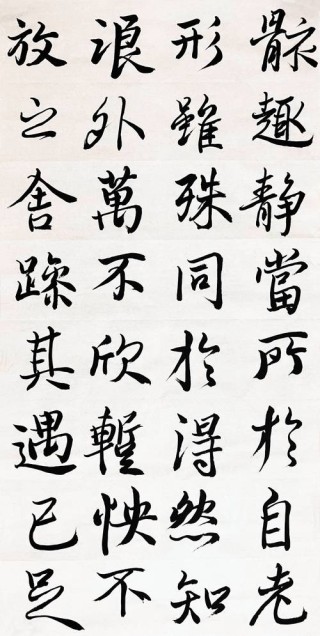 放浪形骸
之外雖趣
舍萬殊静
躁不同當
其欣於所
遇蹔得於
己怏然自
足不知老